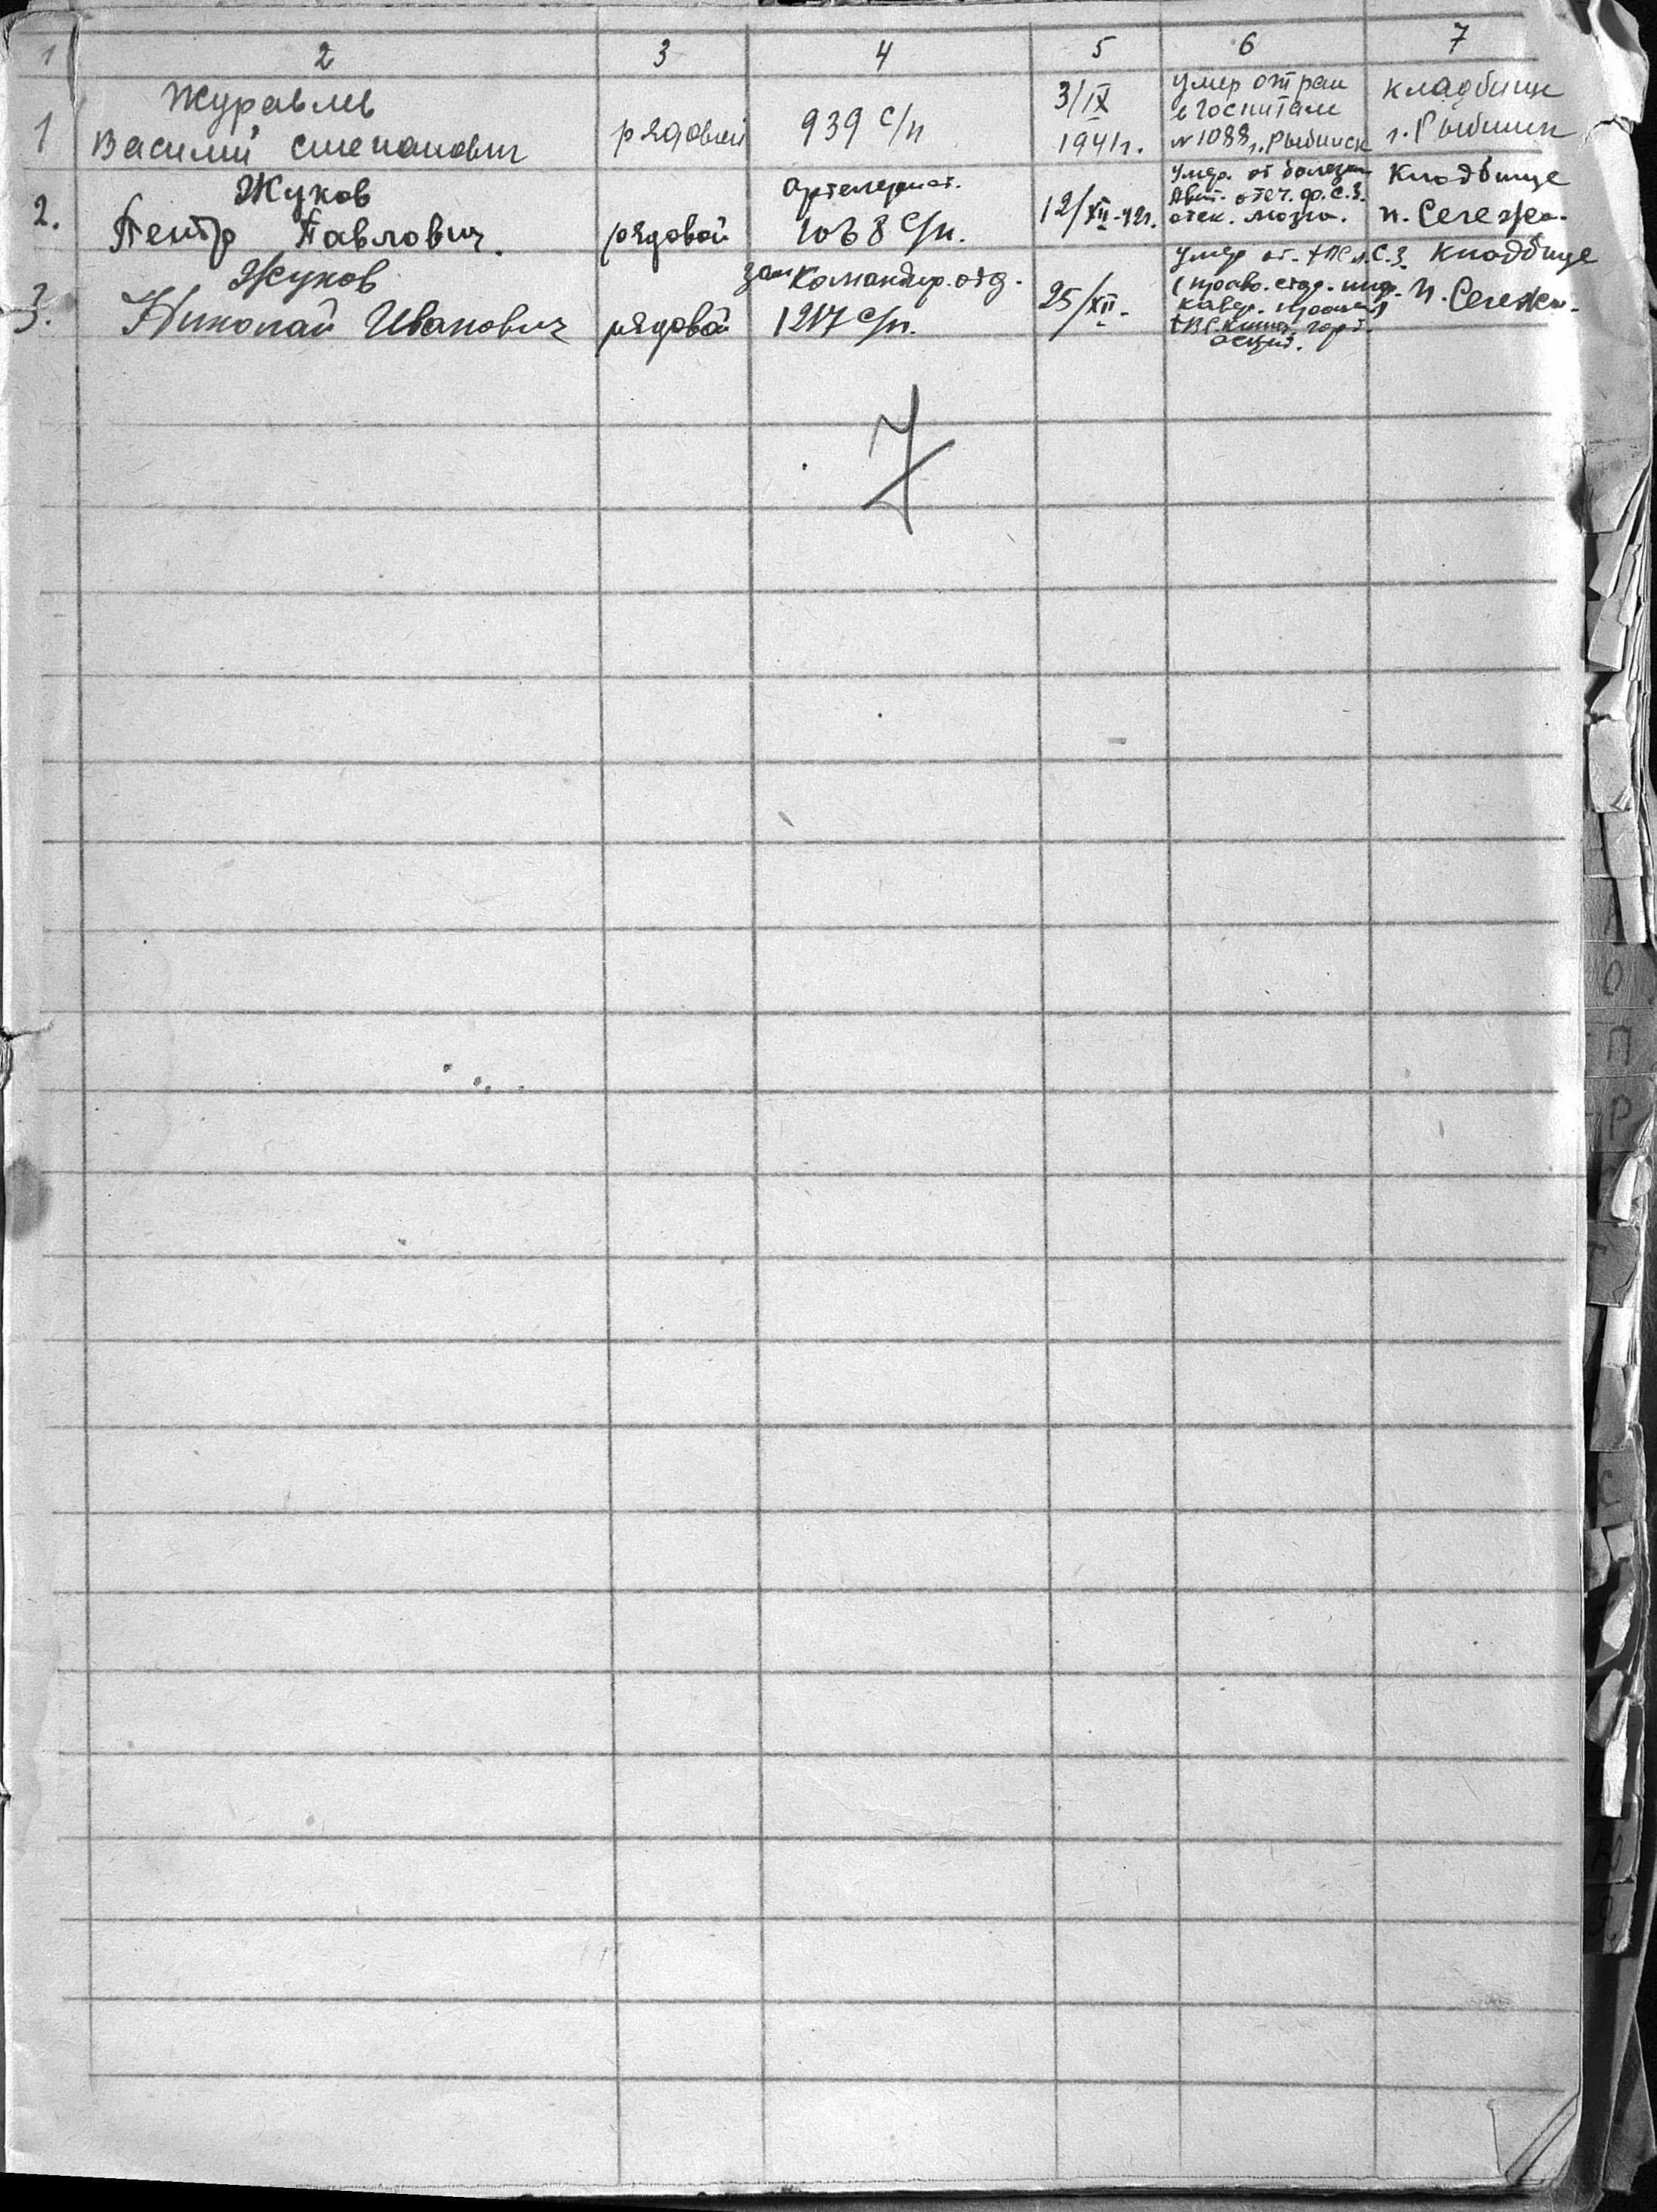 1 2 3 4 5 6 7
1 Журавлев
Василий Степанович
рядовой
939 с/п
3/IX
1941г.
умер от ран
в госпитале
№ 1088 г. Рыбинск
кладбище
г. Рыбинск
2. Жуков
Петр Павлович.
рядовой
Артелерист.
1068 с/п.
12/XII-42г.
Умер. от болезни
отеч. ф. С.З.
отек. мозга.
Кладбище
п. Сегежа.
3. Жуков
Николай Иванович
рядовой
зам командир. отд.
1217 с/п.
25/XII-
Умер от. С.З.
Кладбище
п. Сегежа.
7
О
П
Р
Т
С